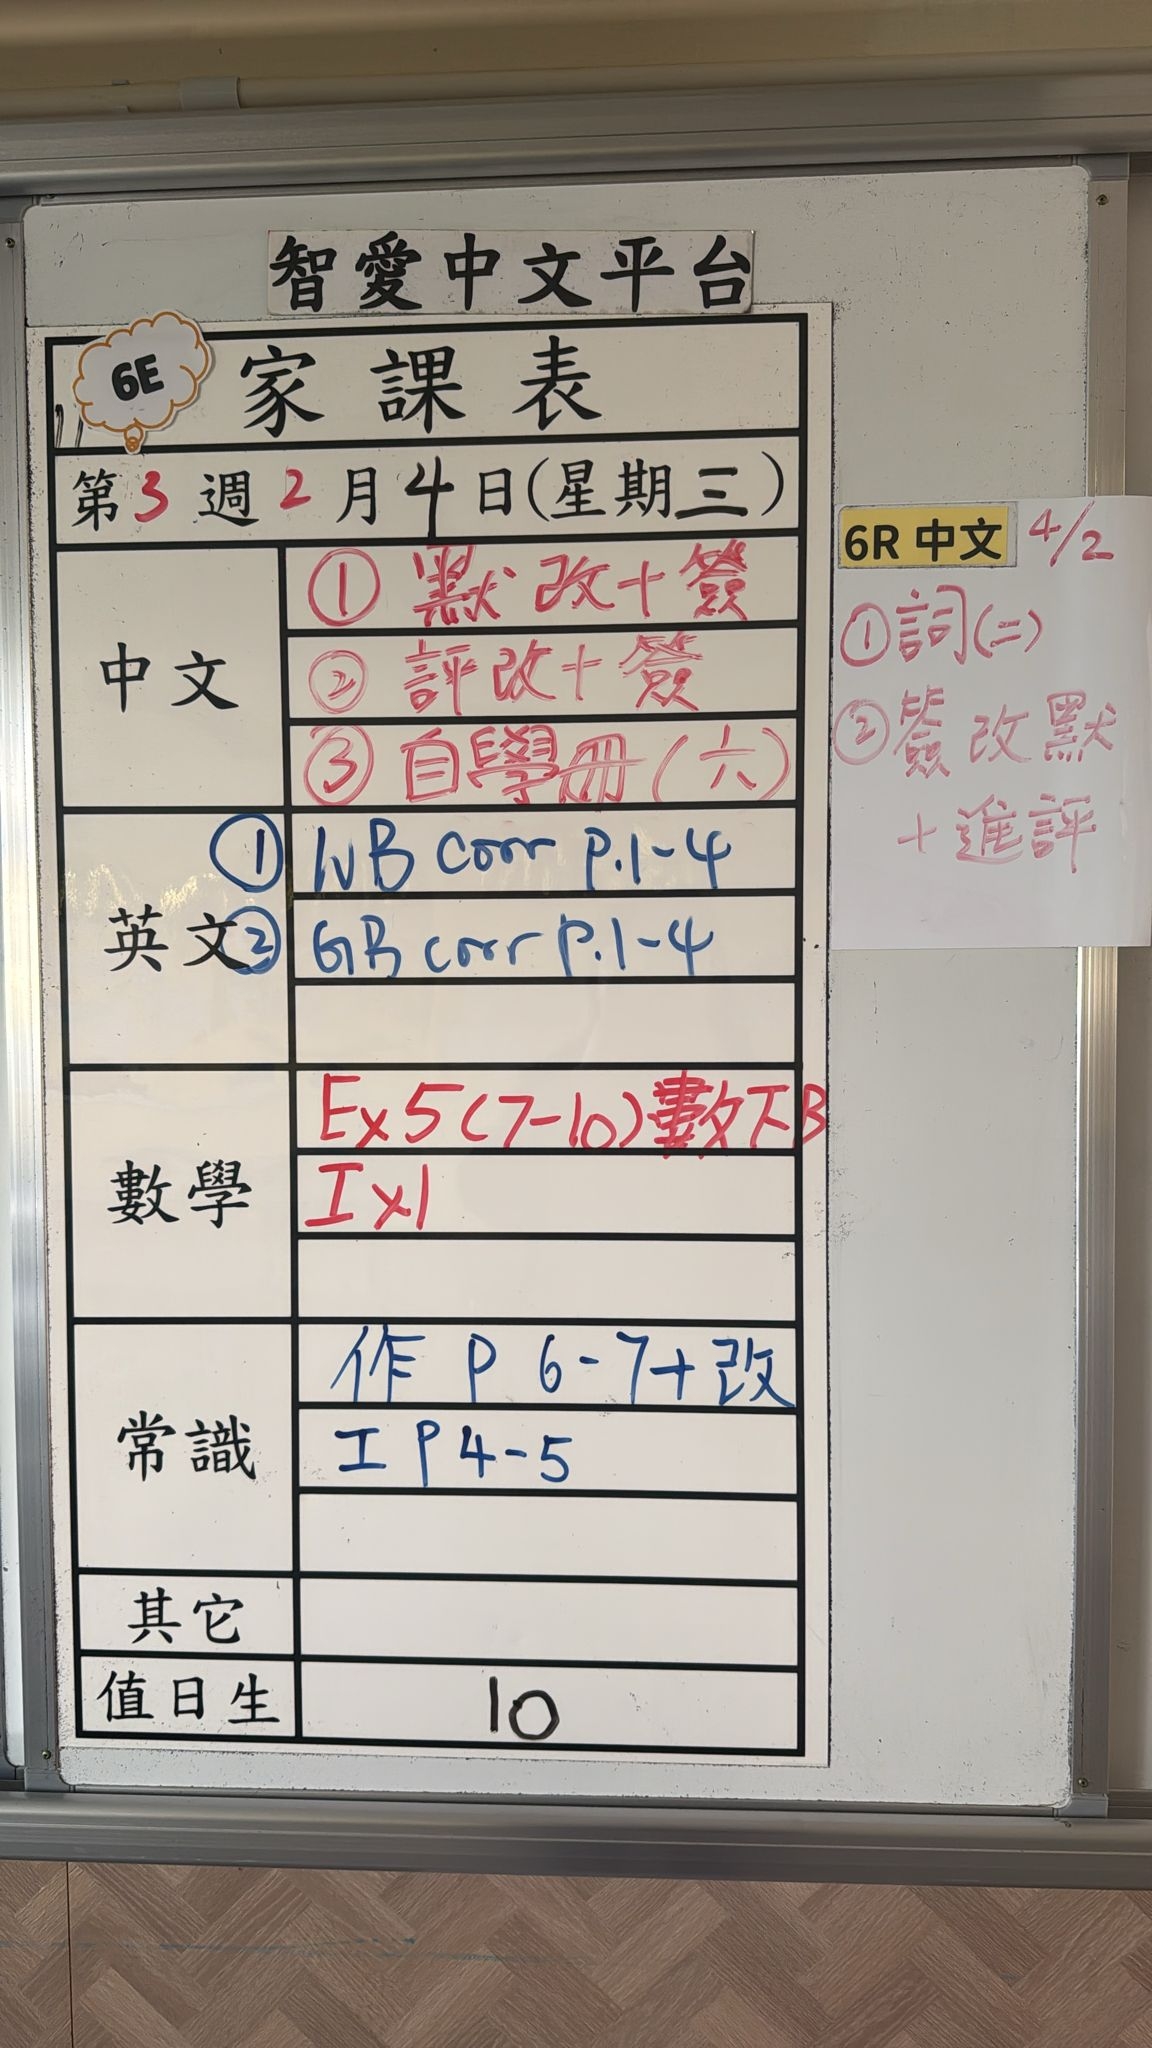 智愛中文平台
6E
家課表
第3週2月4日(星期三)
中文
① 默改+簽
② 評改+簽
③ 自學冊(六)
英文
① WB corr p.1-4
② GB corr p.1-4
數學
Ex5(7-10)數下B
工x1
常識
作 P 6-7+改
工 P4-5
其它
值日生
10
6R 中文 4/2
①詞(二)
②簽改默
+進評